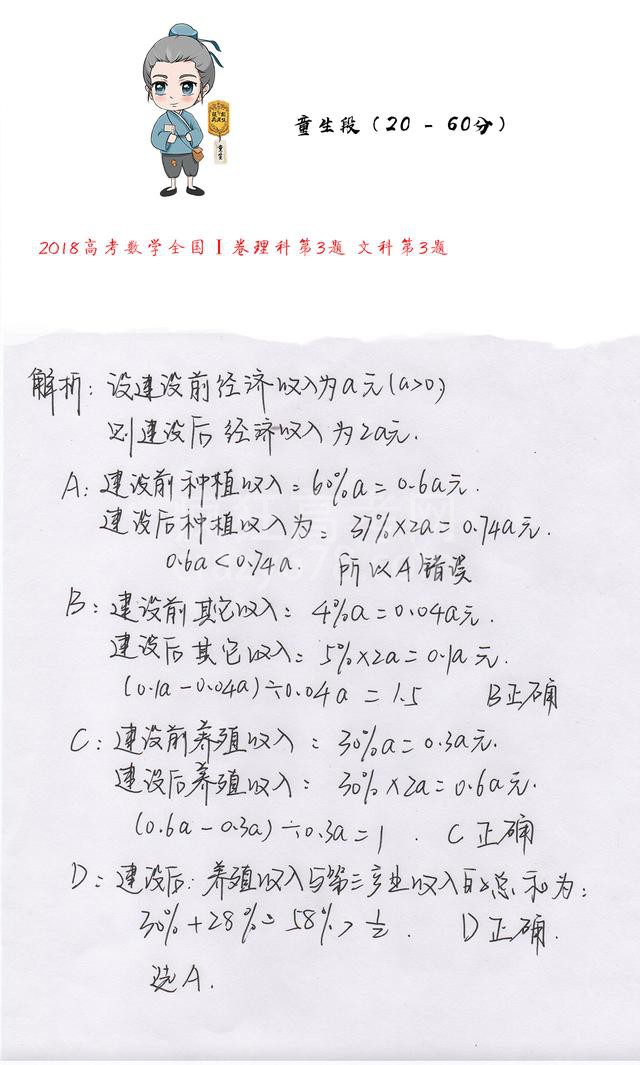 童生段（20 - 60分）
童生
2018高考数学全国Ⅰ卷理科第3题 文科第3题
解析：设建设前经济收入为a元(a>0)
则建设后经济收入为2a元.
A：建设前种植收入：60%a=0.6a元.
建设后种植收入为：37%×2a=0.74a元.
0.6a<0.74a. 所以A错误
B：建设前其它收入：4%a=0.04a元.
建设后其它收入：5%×2a=0.1a元.
(0.1a-0.04a)÷0.04a=1.5 B正确
C：建设前养殖收入：30%a=0.3a元.
建设后养殖收入：30%×2a=0.6a元.
(0.6a-0.3a)÷0.3a=1. C正确
D：建设后：养殖收入与第三产业收入的总和为：
30%+28%=58%>1/2. D正确.
选A.